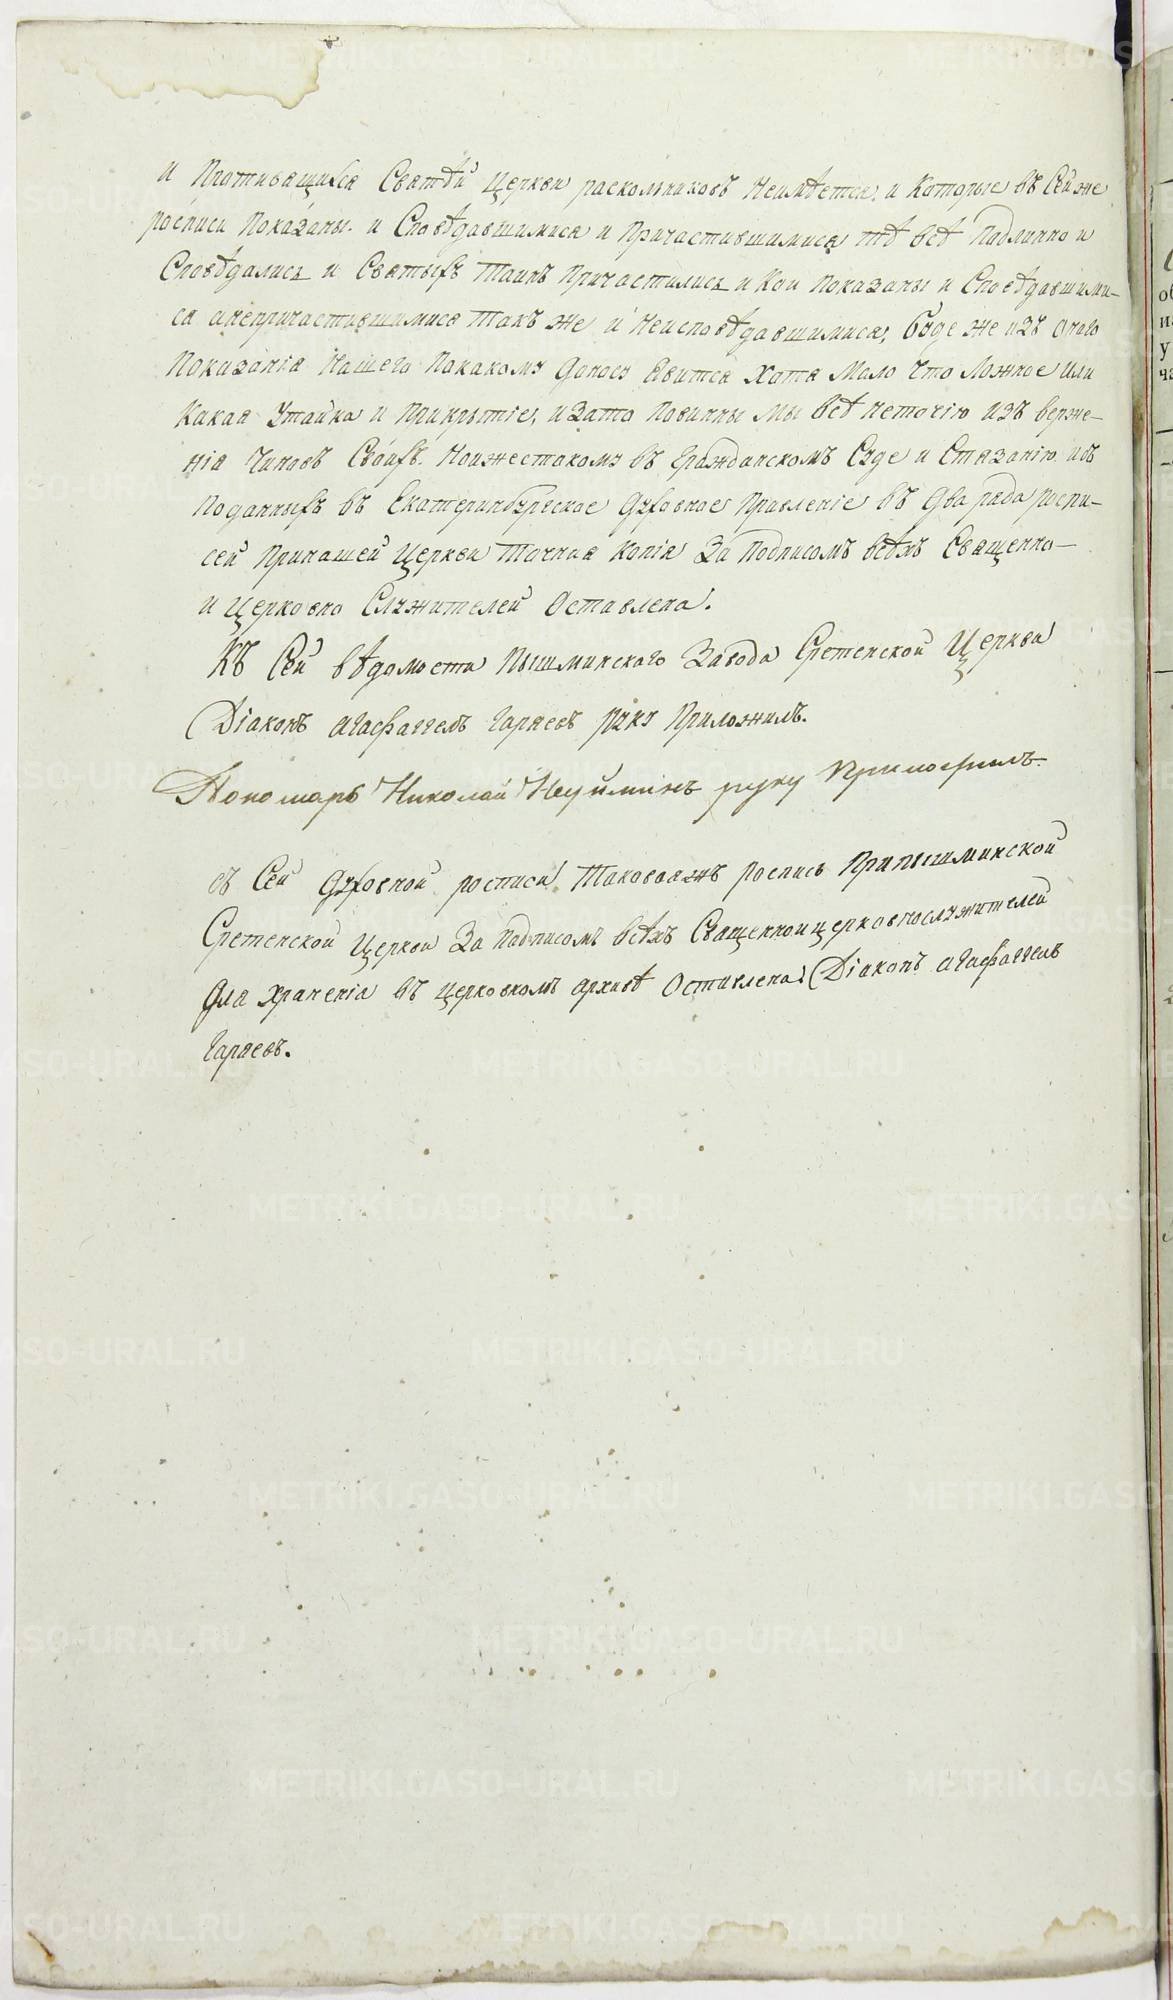 и Противящихся Святѣй Церкви раскольниковъ Неимѣется, и Которые въ Сей же
росписи Показаны. и Сповѣдавшимися и Причастившимися тѣ всѣ Подлинно и
Сповѣдались и Святыхъ Таинъ Причастились и Кои Показаны и Сповѣдавшими–
ся анепричастившимися Такъ же и Неисповѣдавшимися, Буде же изъ Онаго
Показанія Нашего Покакому доносу Явится Хотя Мало Что Ложное Или
Какая Утайка и Прикрытіе, и Зато Повинны Мы всѣ Неточію изъ верже–
нія Чиновъ Своихъ. Ноижестокому въ Гражданскомъ Суде и Стязанію. изъ
Поданныхъ въ Екатеринбургское Духовное Правленіе въ Два ряда роспи–
сей Принашей Церкви Точная Копія За Подписомъ всѣхъ Священно–
и Церковно Служителей Оставлена.
Къ Сей вѣдомости Пышминскаго Завода Сретенской Церкви
Діаконъ Агафаггелъ Гаряевъ руку Приложилъ.
Пономарь Николай Неуйминъ руку Приложилъ.
съ Сей Духовной росписи Таковаяжъ роспись Припышминской
Сретенской Церкви За Подписомъ всѣхъ Священноицерковнослужителей
Для Храненія въ Церковномъ Архивѣ Оставлена. Діаконъ Агафаггелъ
Гаряевъ.
METRIKI.GASO-URAL.RU